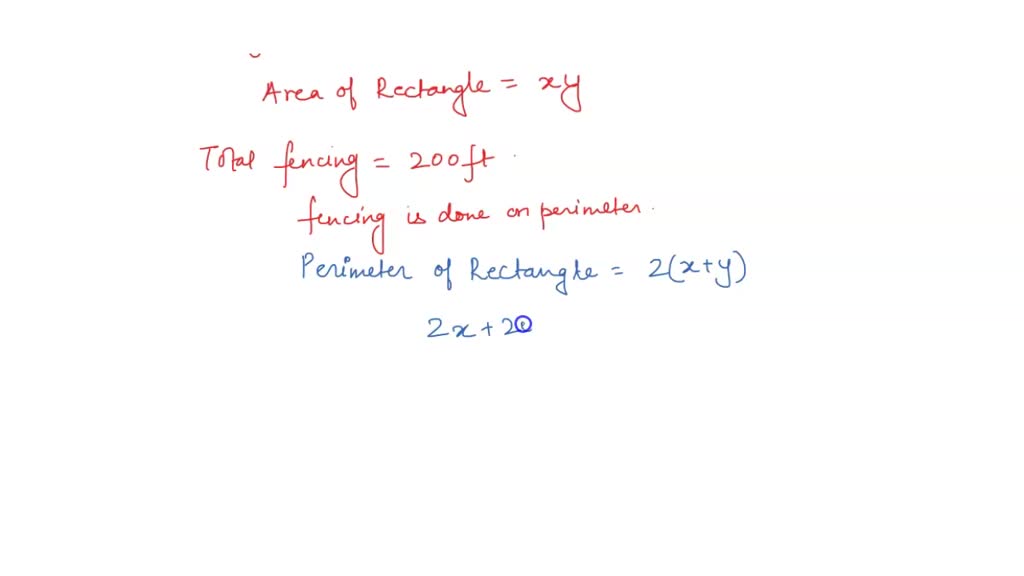 Area of Rectangle = xy
Total fencing = 200ft.
fencing is done on perimeter.
Perimeter of Rectangle = 2(x+y)
2x + 2